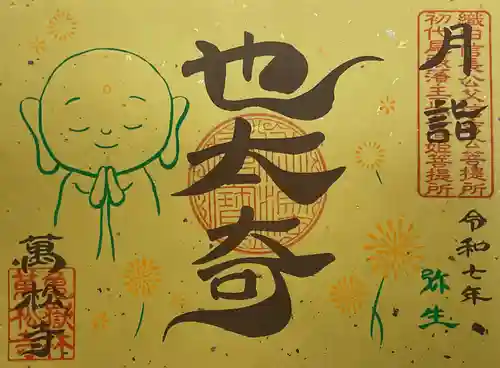 月詣
織田信長公父
公菩提所
初代尾張藩主正
姫菩提所
令和七年
弥生
也太奇
萬松寺
亀嶽林
萬松寺